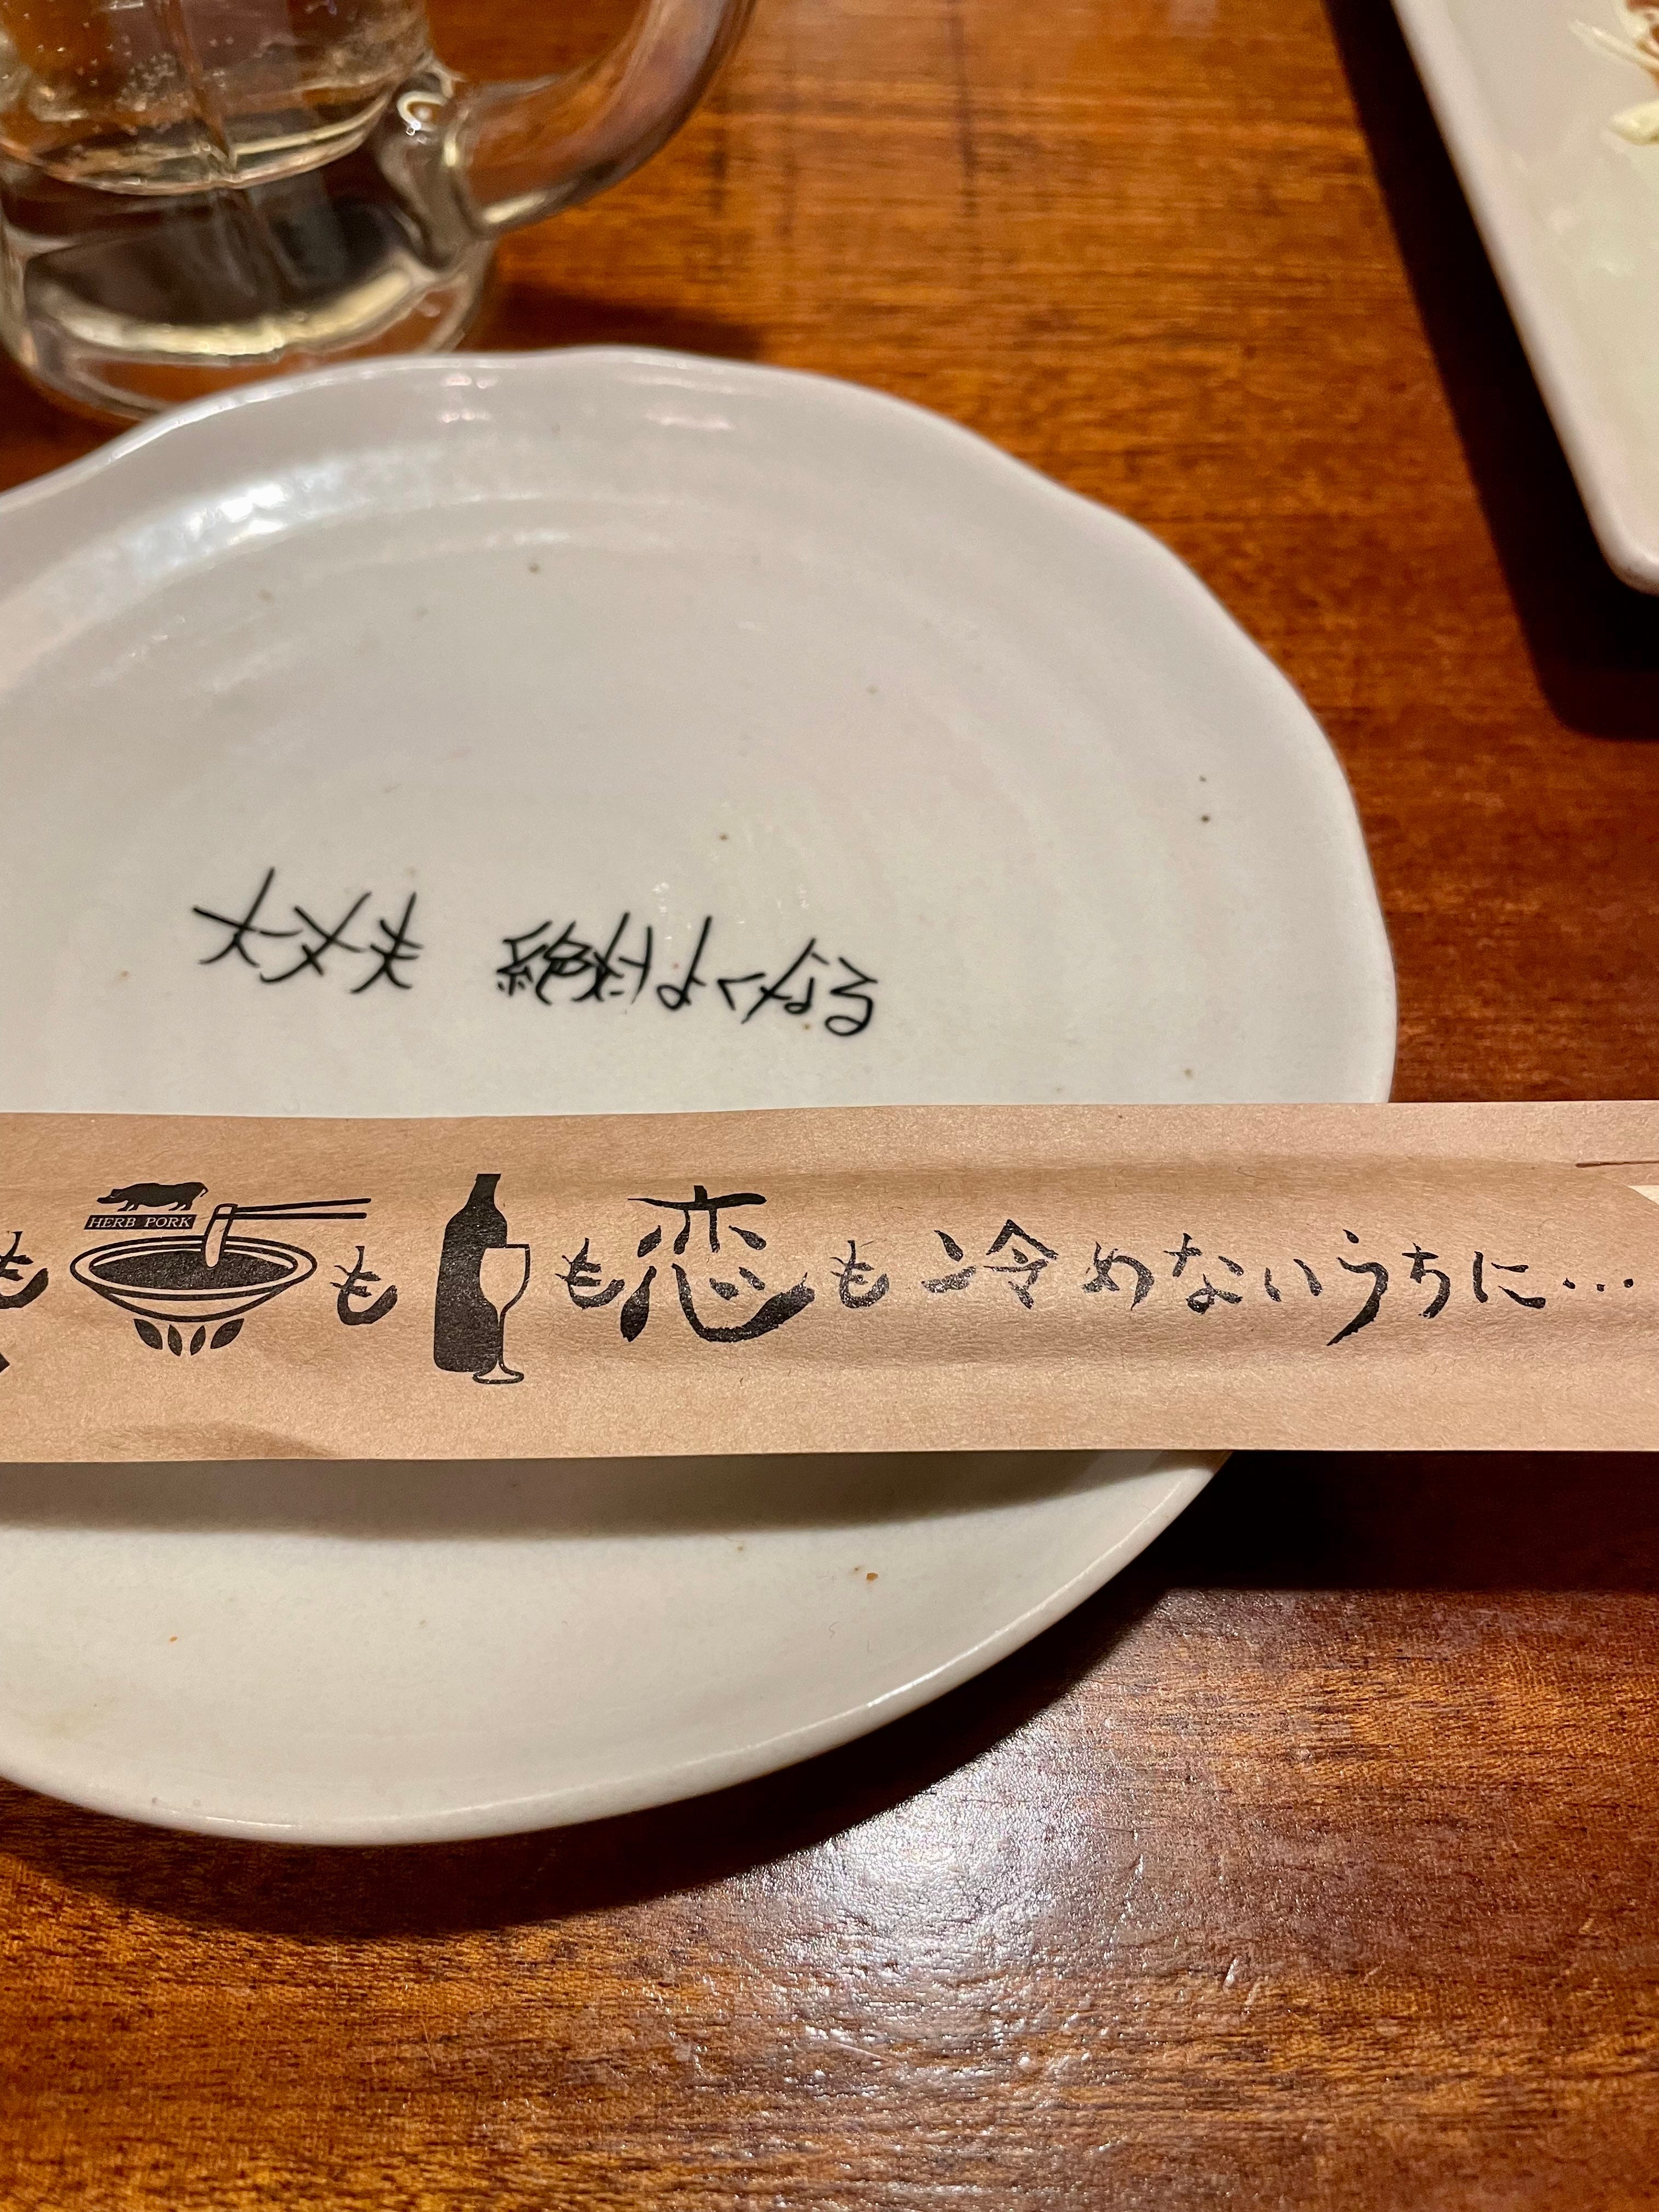 大丈夫 絶対よくなる
HERB PORK
も も も恋も冷めないうちに…